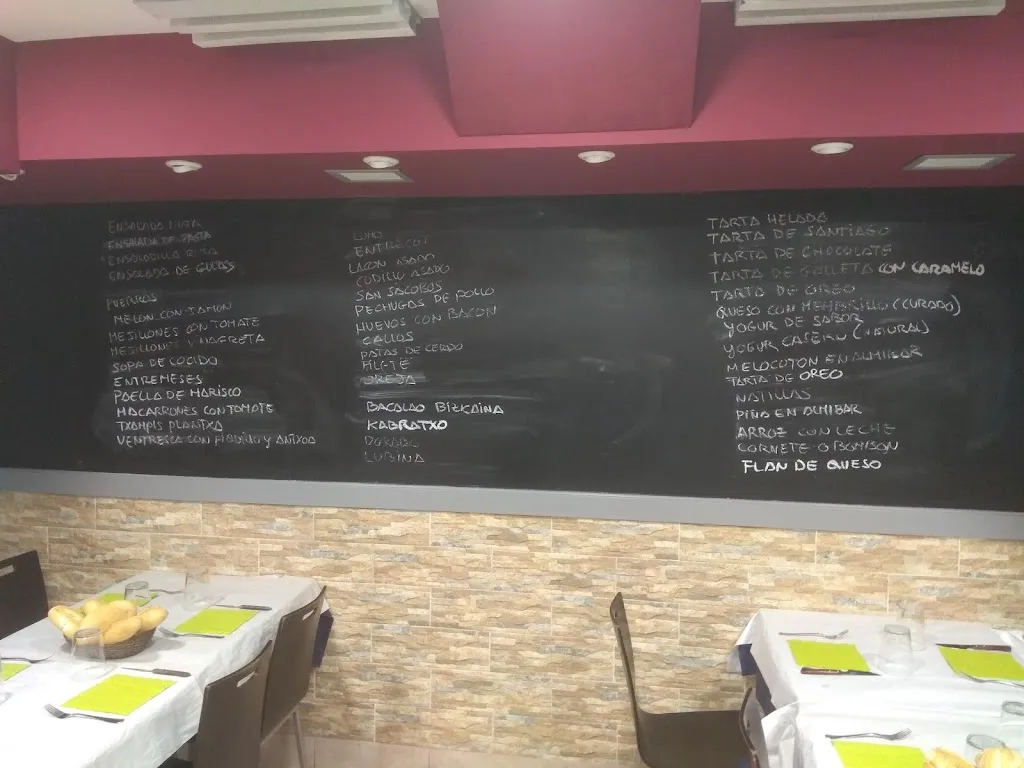 ENSALADA MIXTA
ENSALADA DE PASTA
ENSALADILLA RUSA
ENSALADA DE GULAS
PUERROS
MELON CON JAMON
MEJILLONES CON TOMATE
MEJILLONES VINAGRETA
SOPA DE COCIDO
ENTREMESES
PAELLA DE MARISCO
MACARRONES CON TOMATE
TXAMPIS PLANTXA
VENTRESCA CON PIMIENTO Y ANTXOA
LOMO
ENTRECOT
LACON ASADO
CODILLO ASADO
SAN JACOBOS
PECHUGAS DE POLLO
HUEVOS CON BACON
CALLOS
PATAS DE CERDO
FILETE
OREJA
BACALAO BIZKAINA
KABRATXO
DORADA
LUBINA
TARTA HELADA
TARTA DE SANTIAGO
TARTA DE CHOCOLATE
TARTA DE GALLETA CON CARAMELO
TARTA DE OREO
QUESO CON MEMBRILLO (CURADO)
YOGUR DE SABOR
YOGUR CASERO (NATURAL)
MELOCOTON EN ALMIBAR
TARTA DE OREO
NATILLAS
PIÑA EN ALMIBAR
ARROZ CON LECHE
CORNETE O BOMBON
FLAN DE QUESO